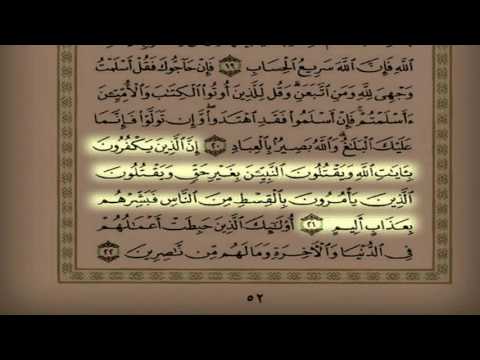 اللَّهِ فَإِنَّ اللَّهَ سَرِيعُ الْحِسَابِ ١٩ فَإِنْ حَاجُّوكَ فَقُلْ أَسْلَمْتُ
وَجْهِيَ لِلَّهِ وَمَنِ اتَّبَعَنِ وَقُل لِّلَّذِينَ أُوتُوا الْكِتَٰبَ وَالْأُمِّيِّۦنَ
ءَأَسْلَمْتُمْ فَإِنْ أَسْلَمُوا فَقَدِ اهْتَدَوا وَّإِن تَوَلَّوْا فَإِنَّمَا
عَلَيْكَ الْبَلَٰغُ وَاللَّهُ بَصِيرٌۢ بِالْعِبَادِ ٢٠ إِنَّ الَّذِينَ يَكْفُرُونَ
بِـَٔايَٰتِ اللَّهِ وَيَقْتُلُونَ النَّبِيِّۦنَ بِغَيْرِ حَقٍّ وَيَقْتُلُونَ
الَّذِينَ يَأْمُرُونَ بِالْقِسْطِ مِنَ النَّاسِ فَبَشِّرْهُم
بِعَذَابٍ أَلِيمٍ ٢١ أُولَٰٓئِكَ الَّذِينَ حَبِطَتْ أَعْمَٰلُهُمْ
فِي الدُّنْيَا وَالْآخِرَةِ وَمَا لَهُم مِّن نَّٰصِرِينَ ٢٢
٥٢